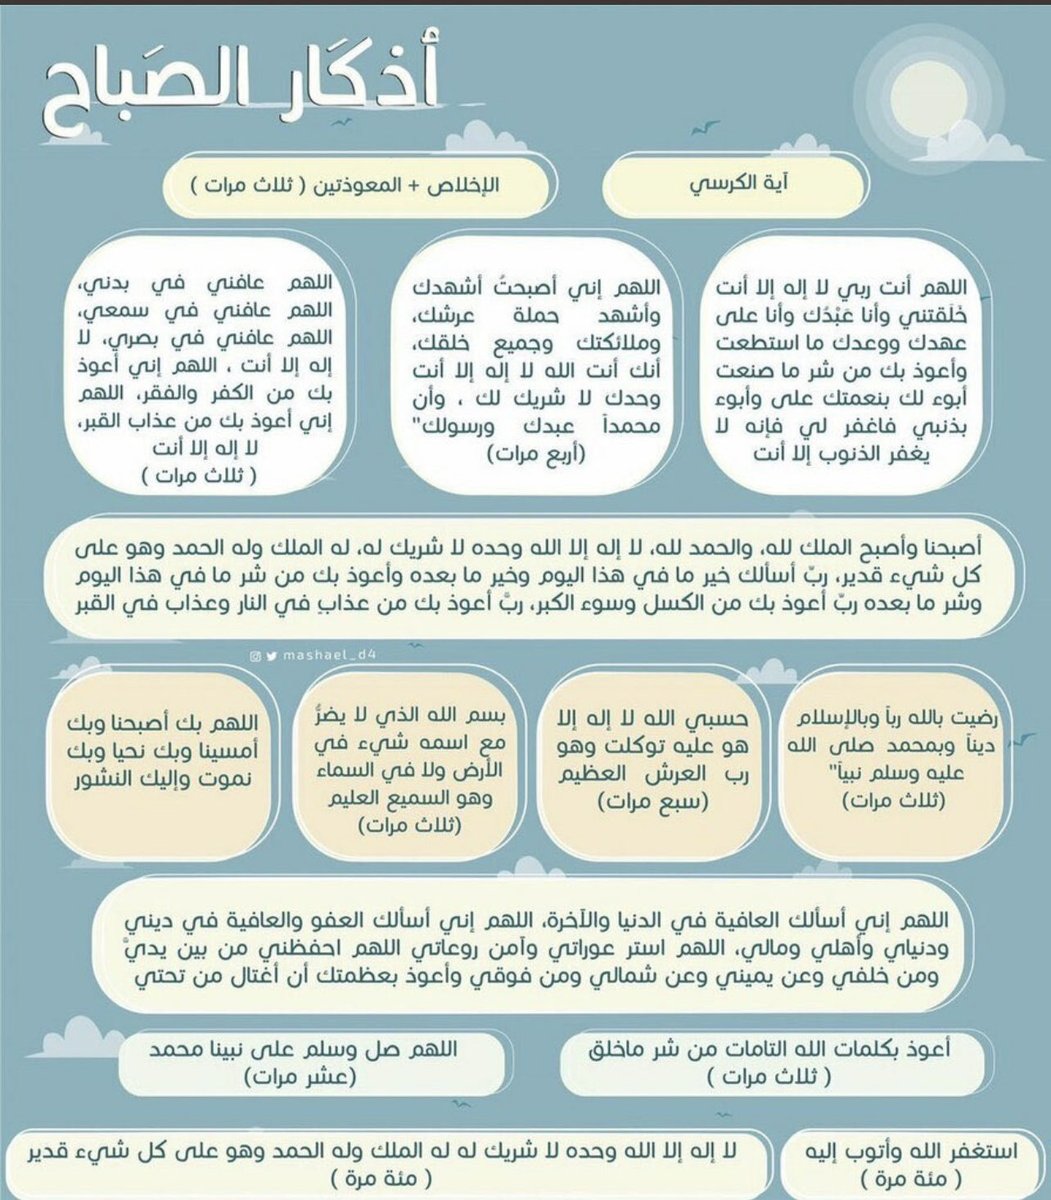 أذكَار الصَباح
آية الكرسي
الإخلاص + المعوذتين ( ثلاث مرات )
اللهم أنت ربي لا إله إلا أنت
خَلَقتني وأنا عَبْدُك وأنا على
عهدك ووعدك ما استطعت
وأعوذ بك من شر ما صنعت
أبوء لك بنعمتك على وأبوء
بذنبي فاغفر لي فإنه لا
يغفر الذنوب إلا أنت
اللهم إني أصبحتُ أشهدك
وأشهد حملة عرشك،
وملائكتك وجميع خلقك،
أنك أنت الله لا إله إلا أنت
وحدك لا شريك لك ، وأن
محمداً عبدك ورسولك"
(أربع مرات)
اللهم عافني في بدني،
اللهم عافني في سمعي،
اللهم عافني في بصري، لا
إله إلا أنت ، اللهم إني أعوذ
بك من الكفر والفقر، اللهم
إني أعوذ بك من عذاب القبر،
لا إله إلا أنت
( ثلاث مرات )
أصبحنا وأصبح الملك لله، والحمد لله، لا إله إلا الله وحده لا شريك له، له الملك وله الحمد وهو على
كل شيء قدير، ربّ أسألك خير ما في هذا اليوم وخير ما بعده وأعوذ بك من شر ما في هذا اليوم
وشر ما بعده ربّ أعوذ بك من الكسل وسوء الكبر، ربَّ أعوذ بك من عذابِ في النار وعذاب في القبر
mashael_d4
رضيت بالله رباً وبالإسلام
ديناً وبمحمد صلى الله
عليه وسلم نبياً"
(ثلاث مرات)
حسبي الله لا إله إلا
هو عليه توكلت وهو
رب العرش العظيم
(سبع مرات)
بسم الله الذي لا يضرُّ
مع اسمه شيء في
الأرض ولا في السماء
وهو السميع العليم
(ثلاث مرات)
اللهم بك أصبحنا وبك
أمسينا وبك نحيا وبك
نموت وإليك النشور
اللهم إني أسألك العافية في الدنيا والآخرة، اللهم إني أسألك العفو والعافية في ديني
ودنياي وأهلي ومالي، اللهم استر عوراتي وآمن روعاتي اللهم احفظني من بين يديَّ
ومن خلفي وعن يميني وعن شمالي ومن فوقي وأعوذ بعظمتك أن أغتال من تحتي
أعوذ بكلمات الله التامات من شر ماخلق
( ثلاث مرات )
اللهم صل وسلم على نبينا محمد
(عشر مرات)
استغفر الله وأتوب إليه
( مئة مرة )
لا إله إلا الله وحده لا شريك له له الملك وله الحمد وهو على كل شيء قدير
( مئة مرة )